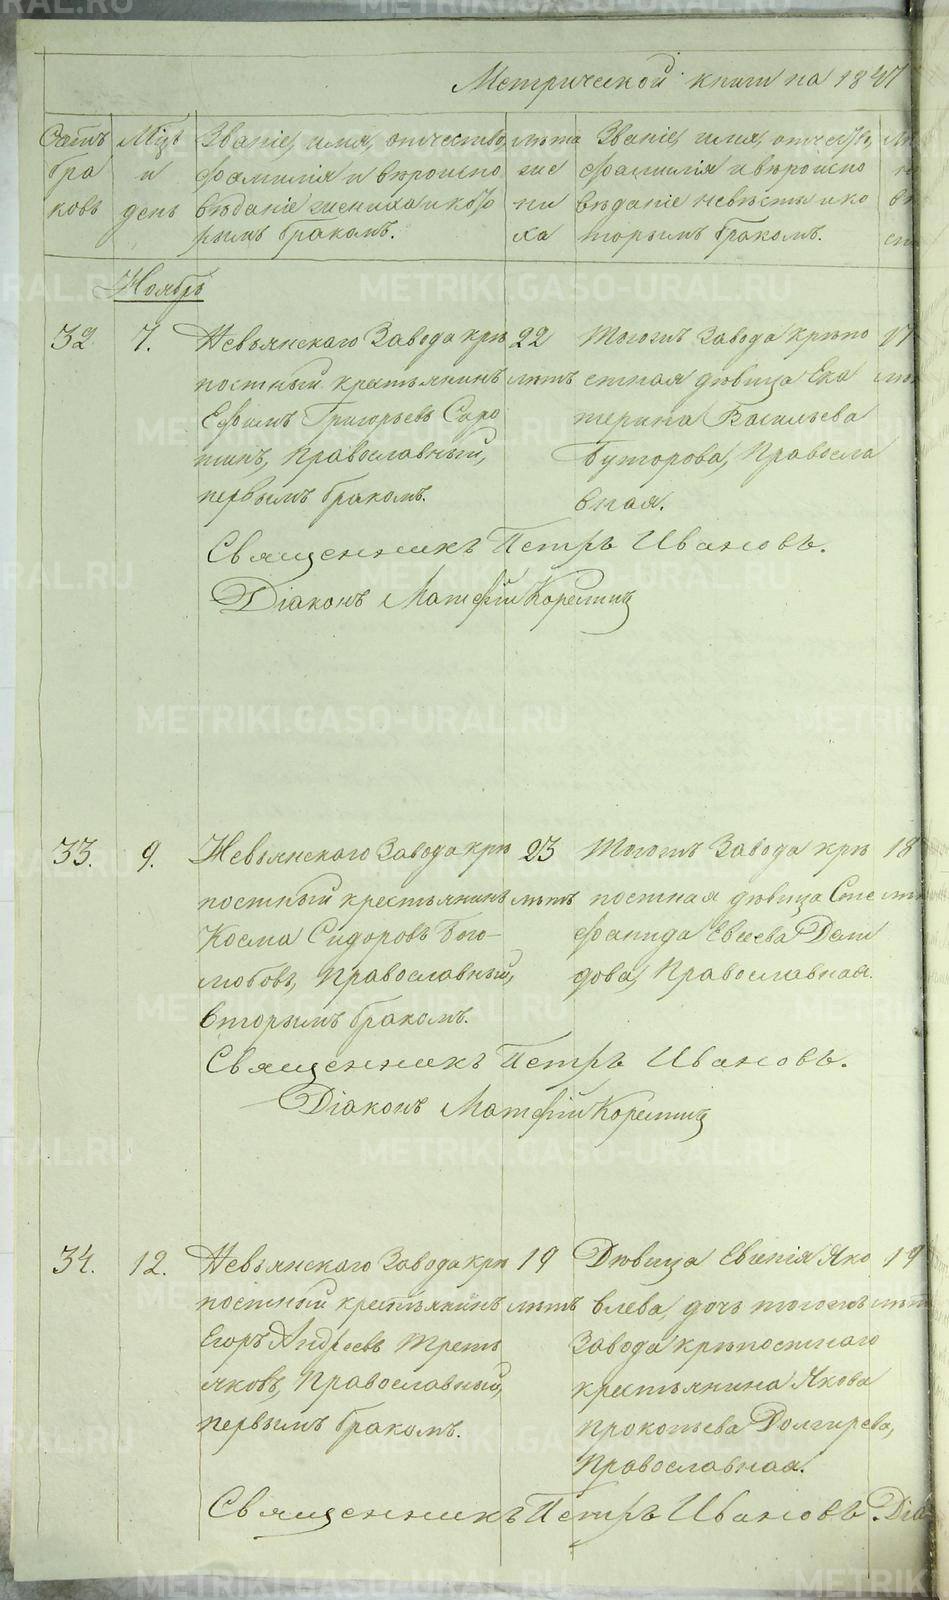 Метрической книги на 1847
Счетъ
бра
ковъ
Мцъ
и
день
Званіе, имя, отчество,
фамилія и вѣроиспо
вѣданіе жениха и кото
рымъ бракомъ.
лѣта
же
ни
ха
Званіе, имя, отчество,
фамилія и вѣроиспо
вѣданіе невѣсты и ко
торымъ бракомъ.
Ноябрь
32. 7.
Невьянскаго Завода крѣ
постный крестьянинъ
Ефимъ Григорьевъ Соро
тинъ, Православный,
первымъ бракомъ.
22
лѣтъ
Тогожъ Завода крѣпо
стная дѣвица Ека
терина Васильева
Буторова, Правосла
вная.
17
Священникъ Петръ Ивановъ.
Діаконъ Матѳій
33. 9.
Невьянскаго Завода крѣ
постный крестьянинъ
Косма Сидоровъ Бого-
любовъ, Православный,
вторымъ бракомъ.
23
лѣтъ
Тогожъ Завода крѣ
постная дѣвица Сте
фанида Евсеева Деми
дова, Православная.
18
Священникъ Петръ Ивановъ.
Діаконъ Матѳій
34. 12.
Невьянскаго Завода крѣ
постный крестьянинъ
Егоръ Андреевъ Треть
яковъ, Православный,
первымъ бракомъ.
19
лѣтъ
Дѣвица Евгенія Яко
влева, дочь тогожъ
Завода крѣпостнаго
крестьянина Якова
Прокопьева Долгирева,
Православная.
19
Священникъ Петръ Ивановъ. Діа
METRIKI.GASO-URAL.RU